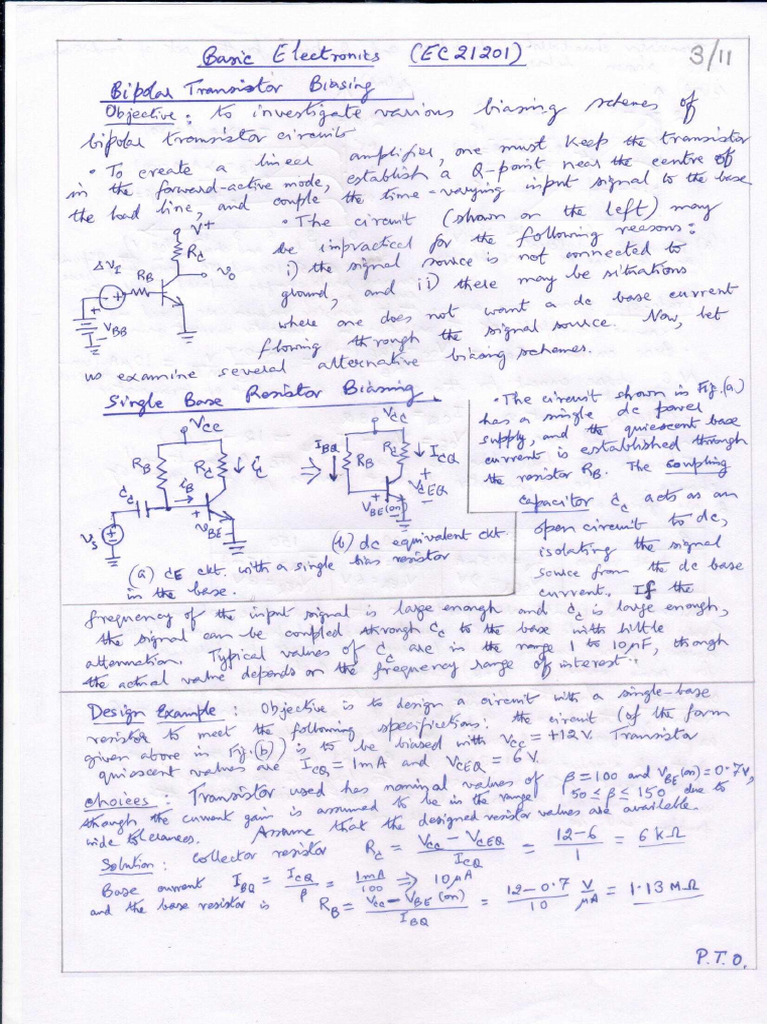 Basic Electronics (EC21201)
3/11
Bipolar Transistor Biasing
Objective: to investigate various biasing schemes of
bipolar transistor circuits
• To create a linear amplifier, one must keep the transistor
in the forward-active mode, establish a Q-point near the centre of
the load line, and couple the time-varying input signal to the base
• The circuit (shown on the left) may
be impractical for the following reasons:
i) the signal source is not connected to
ground, and ii) there may be situations
where one does not want a dc base current
flowing through the signal source. Now, let
us examine several alternative biasing schemes.
V+
RC
vo
ΔVI
RB
VBB
Single Base Resistor Biasing
VCC
RB
RC
iC
iB
CC
vs
vBE
⇒
VCC
IBQ
RB
RC
ICQ
VCEQ
VBE(on)
(a) CE ckt. with a single bias resistor
in the base.
(b) dc equivalent ckt.
• The circuit shown is Fig.(a)
has a single dc power
supply, and the quiescent base
current is established through
the resistor RB. The coupling
capacitor CC acts as an
open circuit to dc,
isolating the signal
source from the dc base
current. If the
frequency of the input signal is large enough and CC is large enough,
the signal can be coupled through CC to the base with little
attenuation. Typical values of CC are in the range 1 to 10μF, though
the actual value depends on the frequency range of interest.
Design Example: Objective is to design a circuit with a single-base
resistor to meet the following specifications: the circuit (of the form
given above in Fig.(b)) is to be biased with VCC = +12V. Transistor
quiescent values are ICQ = 1mA and VCEQ = 6V.
choices: Transistor used has nominal values of β=100 and VBE(on)=0.7V,
though the current gain is assumed to be in the range 50 ≤ β ≤ 150 due to
wide tolerances. Assume that the designed resistor values are available.
Solution: Collector resistor RC = VCC − VCEQ / ICQ = 12−6 / 1 = 6 kΩ
Base current IBQ = ICQ / β = 1mA / 100 ⇒ 10μA
and the base resistor is RB = VCC − VBE(on) / IBQ = 12−0.7 / 10 V/μA = 1.13 MΩ
P.T.O.